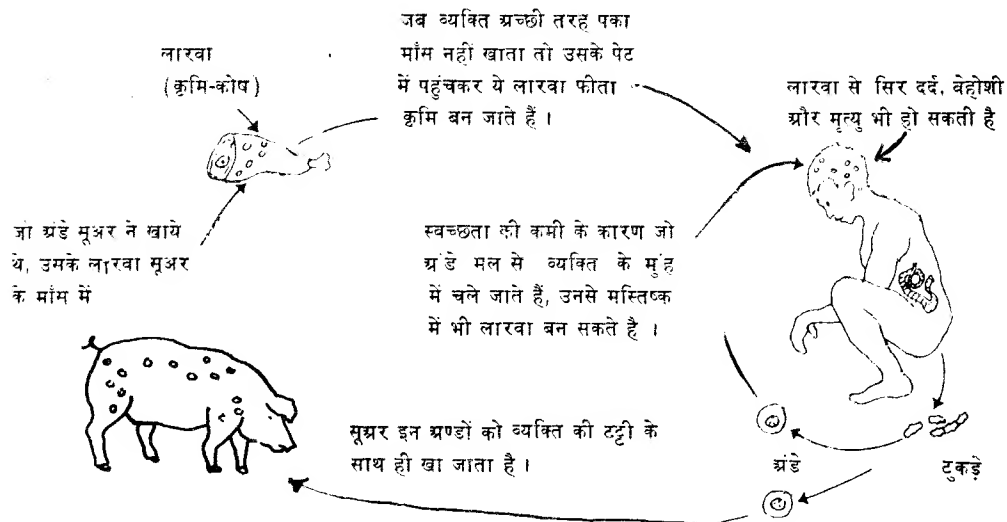 जब व्यक्ति ग्रच्छी तरह पका
माँस नहीं खाता तो उसके पेट
में पहुंचकर ये लारवा फीता
कृमि बन जाते हैं ।
लारवा
(कृमि-कोष)
लारवा से सिर दर्द, बेहोशी
ग्रौर मृत्यु भी हो सकती है
जो ग्रंडे सूअर ने खाये
थे, उमके लारवा सूअर
के माँम में
स्वच्छता की कमी के कारण जो
ग्रंडे मल से व्यक्ति के मुंह
में चले जाते हैं, उनसे मस्तिष्क
में भी लारवा बन सकते है ।
सूग्रर इन ग्रण्डों को व्यक्ति की टट्टी के
साथ ही खा जाता है ।
ग्रंडे
टुकड़े